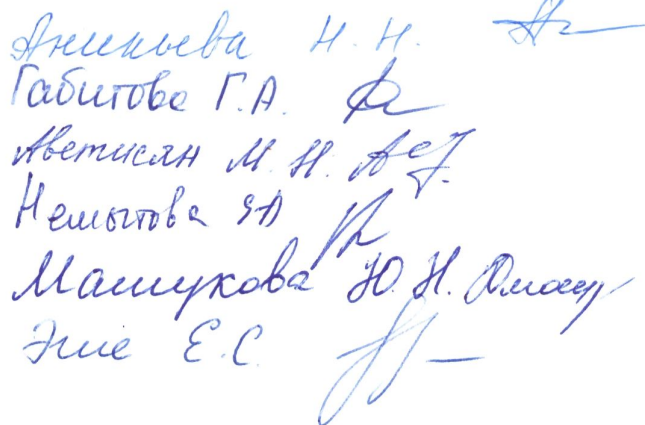 Аникьева Н. Н.
Габитова Г.А.
Аветисян М. Н.
Немытова
Машукова Ю. Н.
Е.С.